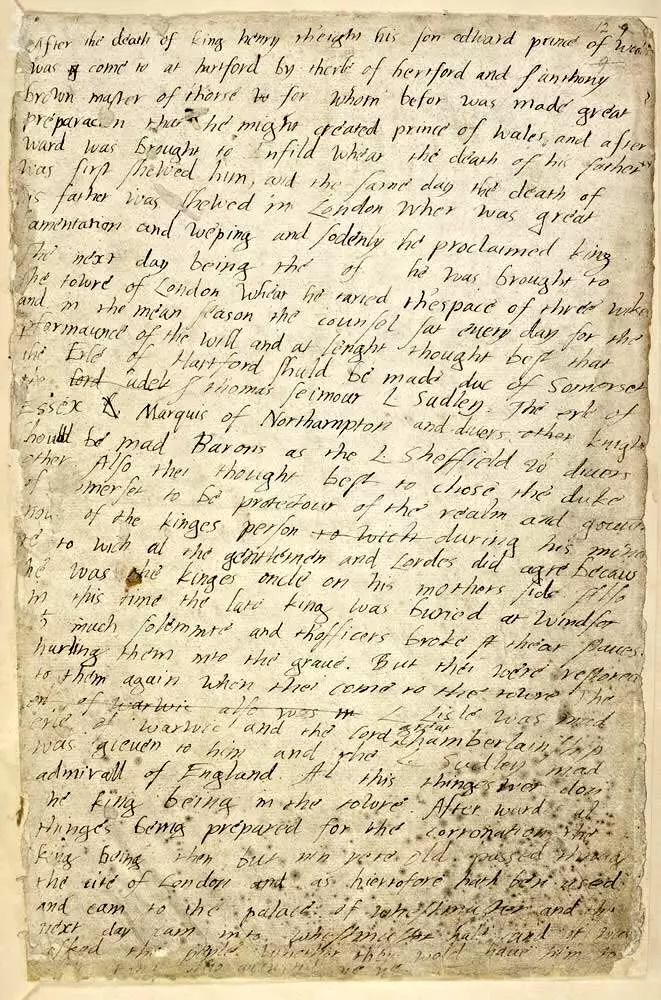 After the death of King henry th'eight his son edward prince of Wales
was come to at hartford by th'erle of hertford and S anthony
brown master of th'orse for whom befor was made great
preparacon that he might created prince of wales, and after
ward was brought to Enfild Whear the death of his father
was first shewed him, and the same day the death of
his father was shewed in London Wher was great
lamentation and weping and sodenly he proclaimed king.
The next day being the of he was brought to
the towre of London Whear he taried th'espace of three wekes
and in the mean season the counsel sat every day for the
performaunce of the will and at lenght thought best that
the Erle of Hartford shuld be made duc of Somerset
S thomas Seimour L Sudley. The erl of
Essex Marquis of Northampton and divers other knights
should be mad Barons as the L Sheffield divers
other. Also thei thought best to chose the duke
of Somerset to be protectour of the realm and
of the kinges person to wich during his
to wich al the gentlemen and Lordes did agre becaus
he was the kinges oncle on his mothers side Also
in this time the late king was buried at Windsor
much solemnite and th'officers broke theär staves
hurling them into the grave. But thei were restored
to them again when thei come to the towre The
of warwic also was in L lisle was mad
erle of warwic and the lord great chamberlain ship
was gieven to him and the L Sudley mad
admirall of England. Al this thinges wer don
the king being in the towre. After ward al
thinges being prepared for the corronation the
king being then but nin yere old passed
the cite of London and as hiertofore hath bene used
and cam to the palace of Whestmaster and the
next day cam into Whestmaster hall and it was
asked the peple Whether thei wold have him to